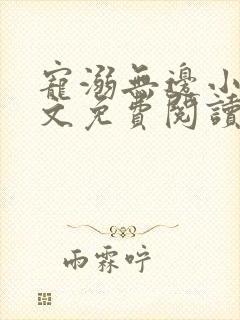 寵溺無邊小
文免費閱讀
雨霖咛